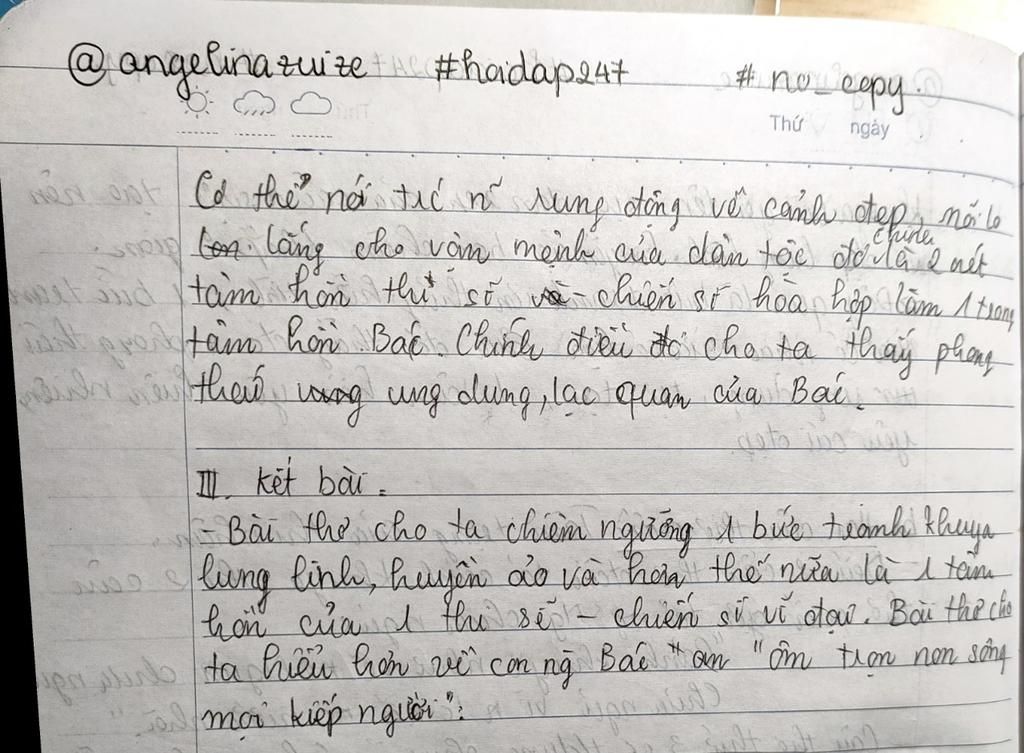 @angelinazuize #hoidap247 # no_copy.
Thứ ngày
Có thể nói từ n~ rung động về cảnh đẹp, nỗi lo
lắng cho vận mệnh của dân tộc đó chính là 2 nét
tâm hồn thi sĩ - chiến sĩ hòa hợp làm 1 trong
tâm hồn Bác. Chính điều đó cho ta thấy phong
thái ung dung, lạc quan của Bác.
III. Kết bài.
- Bài thơ cho ta chiêm ngưỡng 1 bức tranh khuya
lung linh, huyền ảo và hơn thế nữa là 1 tâm
hồn của 1 thi sĩ - chiến sĩ vĩ đại. Bài thơ cho
ta hiểu hơn về con ng Bác "ôm trọn non sông
mọi kiếp người".